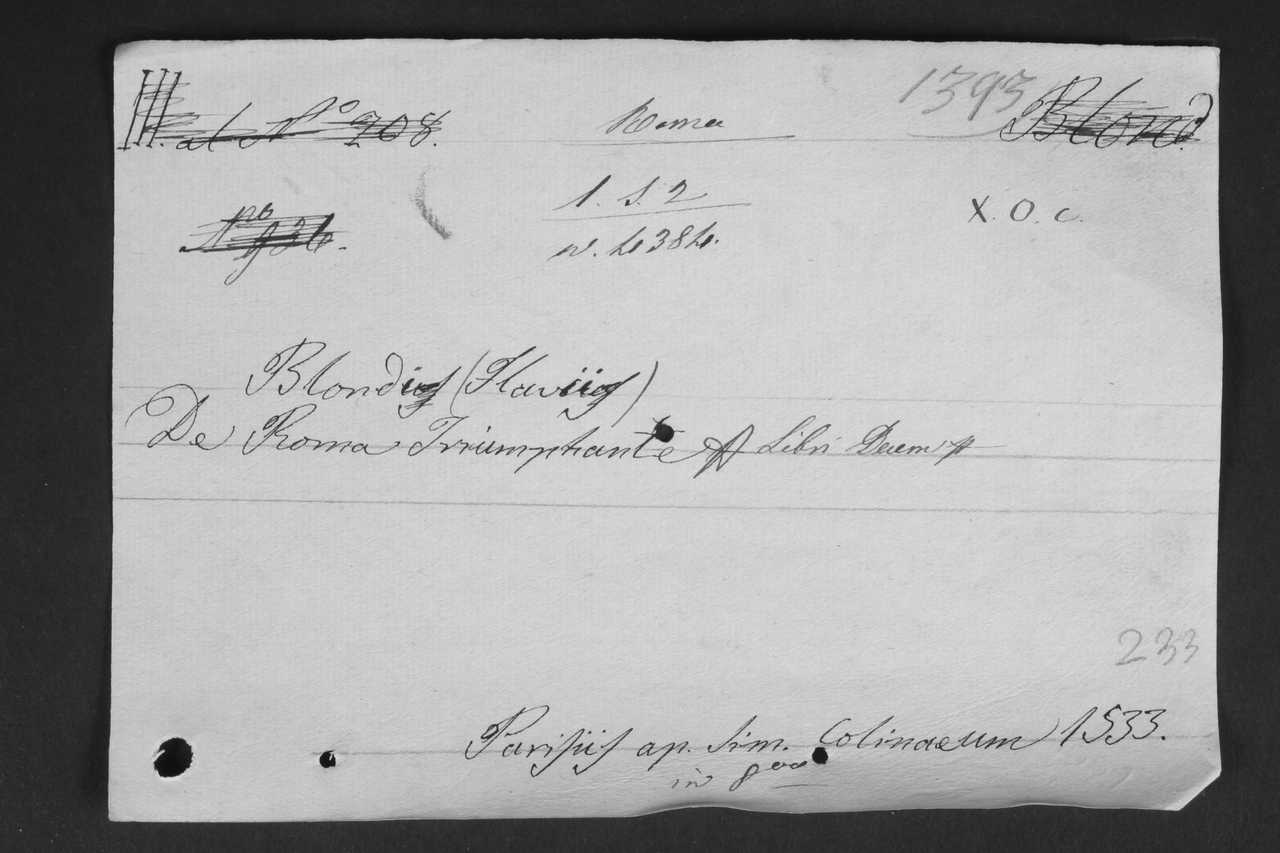 III. al Nº 208.
Roma
1393
Blond.
1. S. 2
X. O. c.
Blondius (Flavius)
De Roma Triumphante Libri Decem
233
Parisiis ap. Sim. Colinaeum 1533.
in 8vo